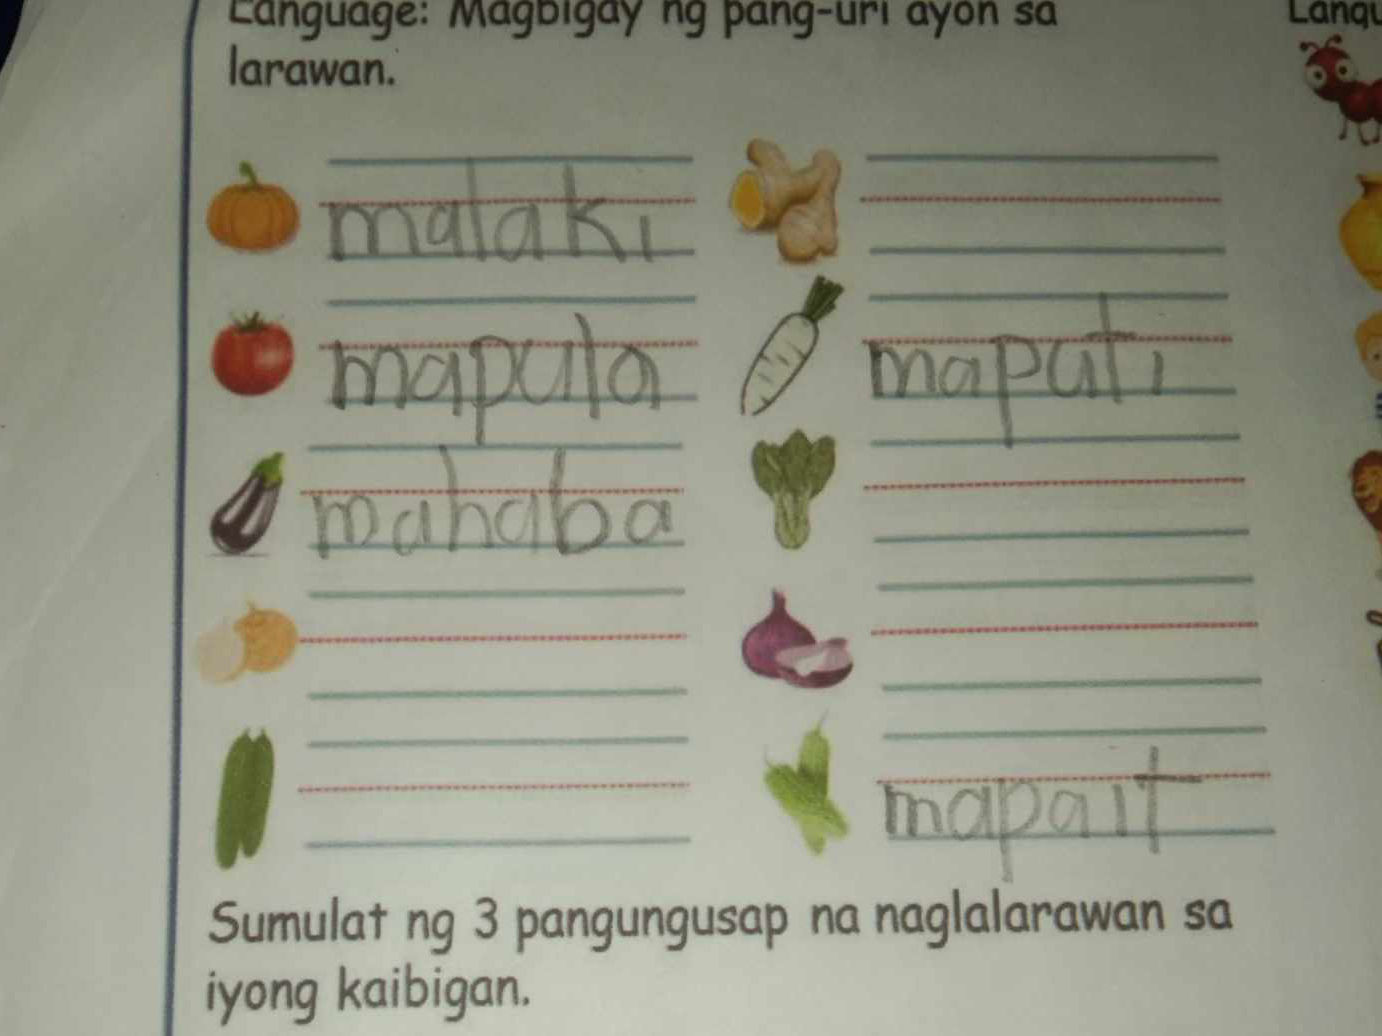 Language: Magbigay ng pang-uri ayon sa
larawan.
malaki
mapula
maputi
mahaba
mapait
Sumulat ng 3 pangungusap na naglalarawan sa
iyong kaibigan.